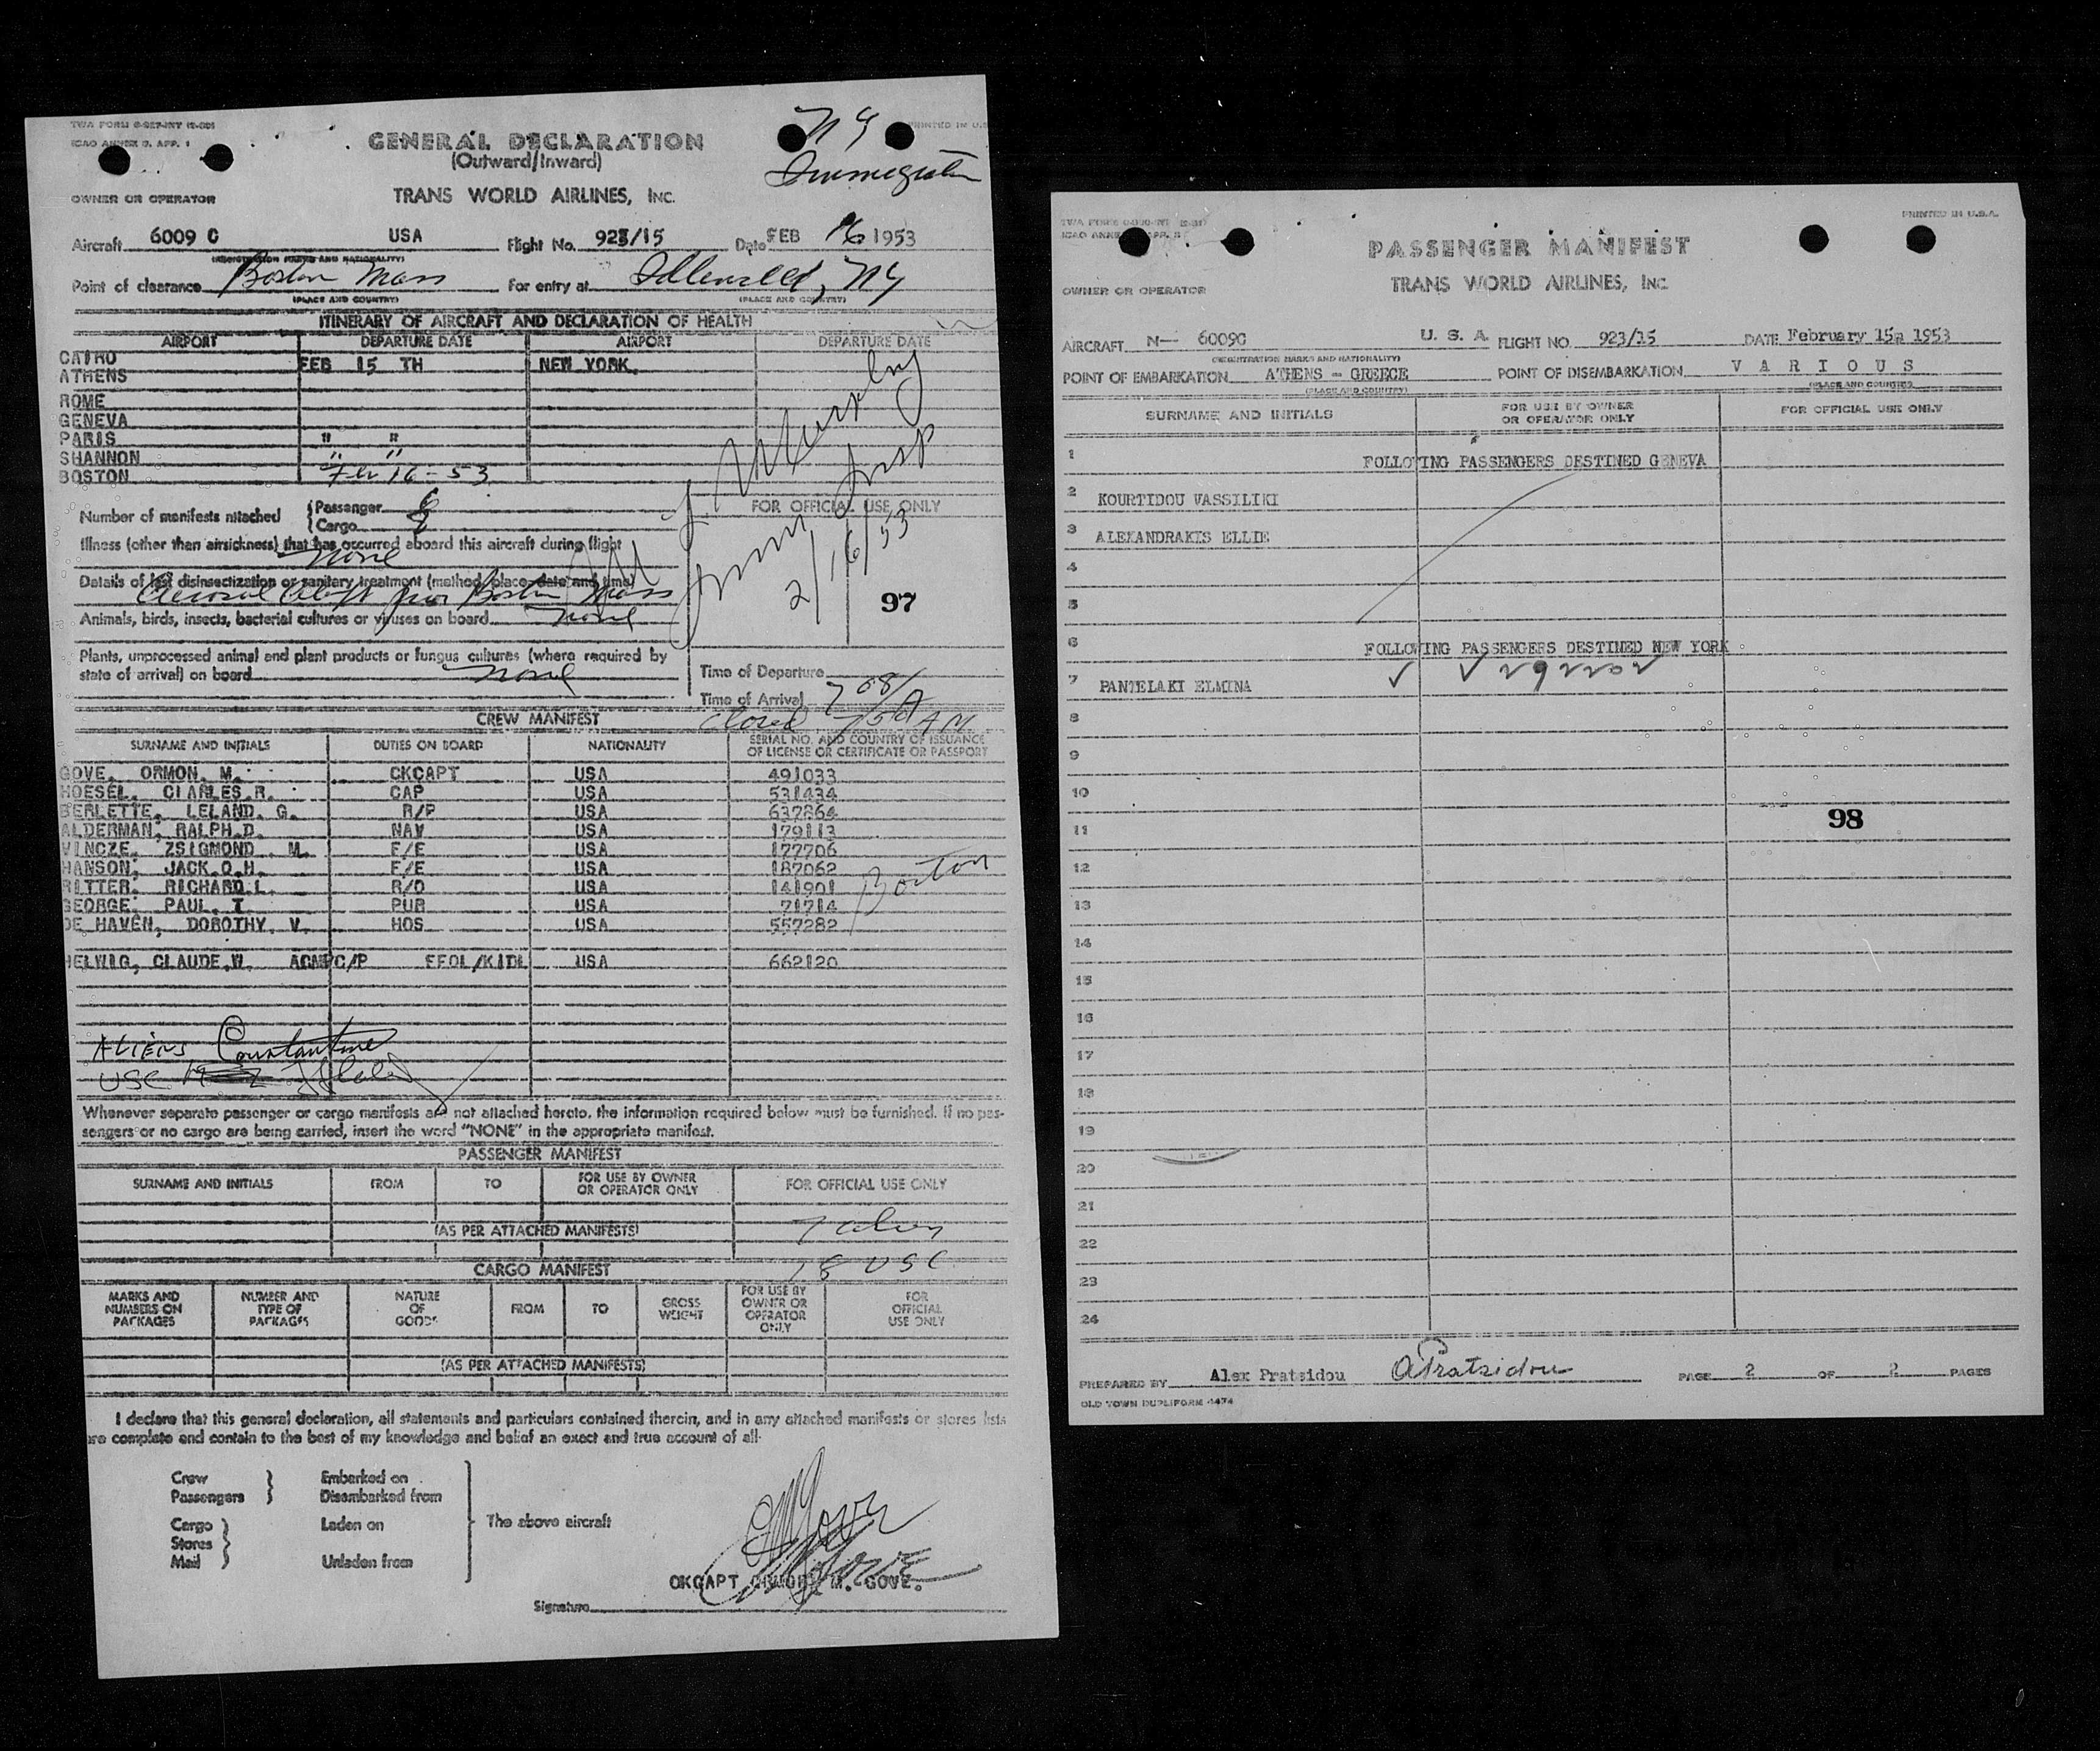 GENERAL DECLARATION
(Outward/Inward)
TRANS WORLD AIRLINES, INC.
OWNER OR OPERATOR
PRINTED IN U.S.
N Y
Immigration
Aircraft 6009 C USA Flight No. 923/15 Date FEB 16 1953
(REGISTRATION MARKS AND NATIONALITY)
Point of clearance Boston Mass For entry at Idlewild, NY
(PLACE AND COUNTRY) (PLACE AND COUNTRY)
ITINERARY OF AIRCRAFT AND DECLARATION OF HEALTH
AIRPORT DEPARTURE DATE AIRPORT DEPARTURE DATE
CAIRO FEB 15 TH NEW YORK
ATHENS
ROME
GENEVA
PARIS " "
SHANNON " "
BOSTON Feb 16-53
J. Murphy
Immy Insp
2/16/53
Number of manifests attached Passenger
Cargo
FOR OFFICIAL USE ONLY
Illness (other than airsickness) that has occurred aboard this aircraft during flight
None
Details of last disinsectization or sanitary treatment (method, place, date and time)
Aerosol Aloft prior Boston Mass
97
Animals, birds, insects, bacterial cultures or viruses on board None
Plants, unprocessed animal and plant products or fungus cultures (where required by
state of arrival) on board None
Time of Departure
Time of Arrival 7 08/A
closed 750 AM
CREW MANIFEST
SURNAME AND INITIALS DUTIES ON BOARD NATIONALITY SERIAL NO. AND COUNTRY OF ISSUANCE
OF LICENSE OR CERTIFICATE OR PASSPORT
GOVE, ORMON. M. CKCAPT USA 491033
HOESEL, CHARLES.R. CAP USA 531434
BERLETTE, LELAND. G. R/P USA 637864
ALDERMAN, RALPH.D. NAV USA 179113
VINCZE, ZSIGMOND . M. F/E USA 177706
HANSON, JACK.O.H. F/E USA 187062
RITTER, RICHARD.L. R/O USA 141901
GEORGE, PAUL. T. PUR USA 71714
DE HAVEN, DOROTHY. V. HOS USA 557282
Boston
HELWIG, CLAUDE.W. ACMPC/P EFOL/KIDL USA 662120
ALIENS Constantine
USC
Whenever separate passenger or cargo manifests are not attached hereto, the information required below must be furnished. If no pas-
sengers or no cargo are being carried, insert the word "NONE" in the appropriate manifest.
PASSENGER MANIFEST
SURNAME AND INITIALS FROM TO FOR USE BY OWNER
OR OPERATOR ONLY FOR OFFICIAL USE ONLY
(AS PER ATTACHED MANIFESTS)
7 alien
18 USC
CARGO MANIFEST
MARKS AND
NUMBERS ON
PACKAGES NUMBER AND
TYPE OF
PACKAGES NATURE
OF
GOODS FROM TO GROSS
WEIGHT FOR USE BY
OWNER OR
OPERATOR
ONLY FOR
OFFICIAL
USE ONLY
(AS PER ATTACHED MANIFESTS)
I declare that this general declaration, all statements and particulars contained therein, and in any attached manifests or stores lists
are complete and contain to the best of my knowledge and belief an exact and true account of all
Crew Embarked on
Passengers Disembarked from
Cargo Laden on The above aircraft
Stores
Mail Unladen from
CKCAPT ORMON M. GOVE.
Signature
PRINTED IN U.S.A.
PASSENGER MANIFEST
OWNER OR OPERATOR TRANS WORLD AIRLINES, INC.
AIRCRAFT N-- 6009C U. S. A. FLIGHT NO. 923/15 DATE February 15, 1953
(REGISTRATION MARKS AND NATIONALITY)
POINT OF EMBARKATION ATHENS - GREECE POINT OF DISEMBARKATION V A R I O U S
(PLACE AND COUNTRY) (PLACE AND COUNTRY)
SURNAME AND INITIALS FOR USE BY OWNER
OR OPERATOR ONLY FOR OFFICIAL USE ONLY
1 FOLLOWING PASSENGERS DESTINED GENEVA
2 KOURTIDOU VASSILIKI
3 ALEXANDRAKIS ELLIE
4
5
6 FOLLOWING PASSENGERS DESTINED NEW YORK
7 PANTELAKI ELMINA
8
9
10
11 98
12
13
14
15
16
17
18
19
20
21
22
23
24
PREPARED BY Alex Pratsidou APratsidou PAGE 2 OF 2 PAGES
OLD TOWN DUPLIFORM 4474